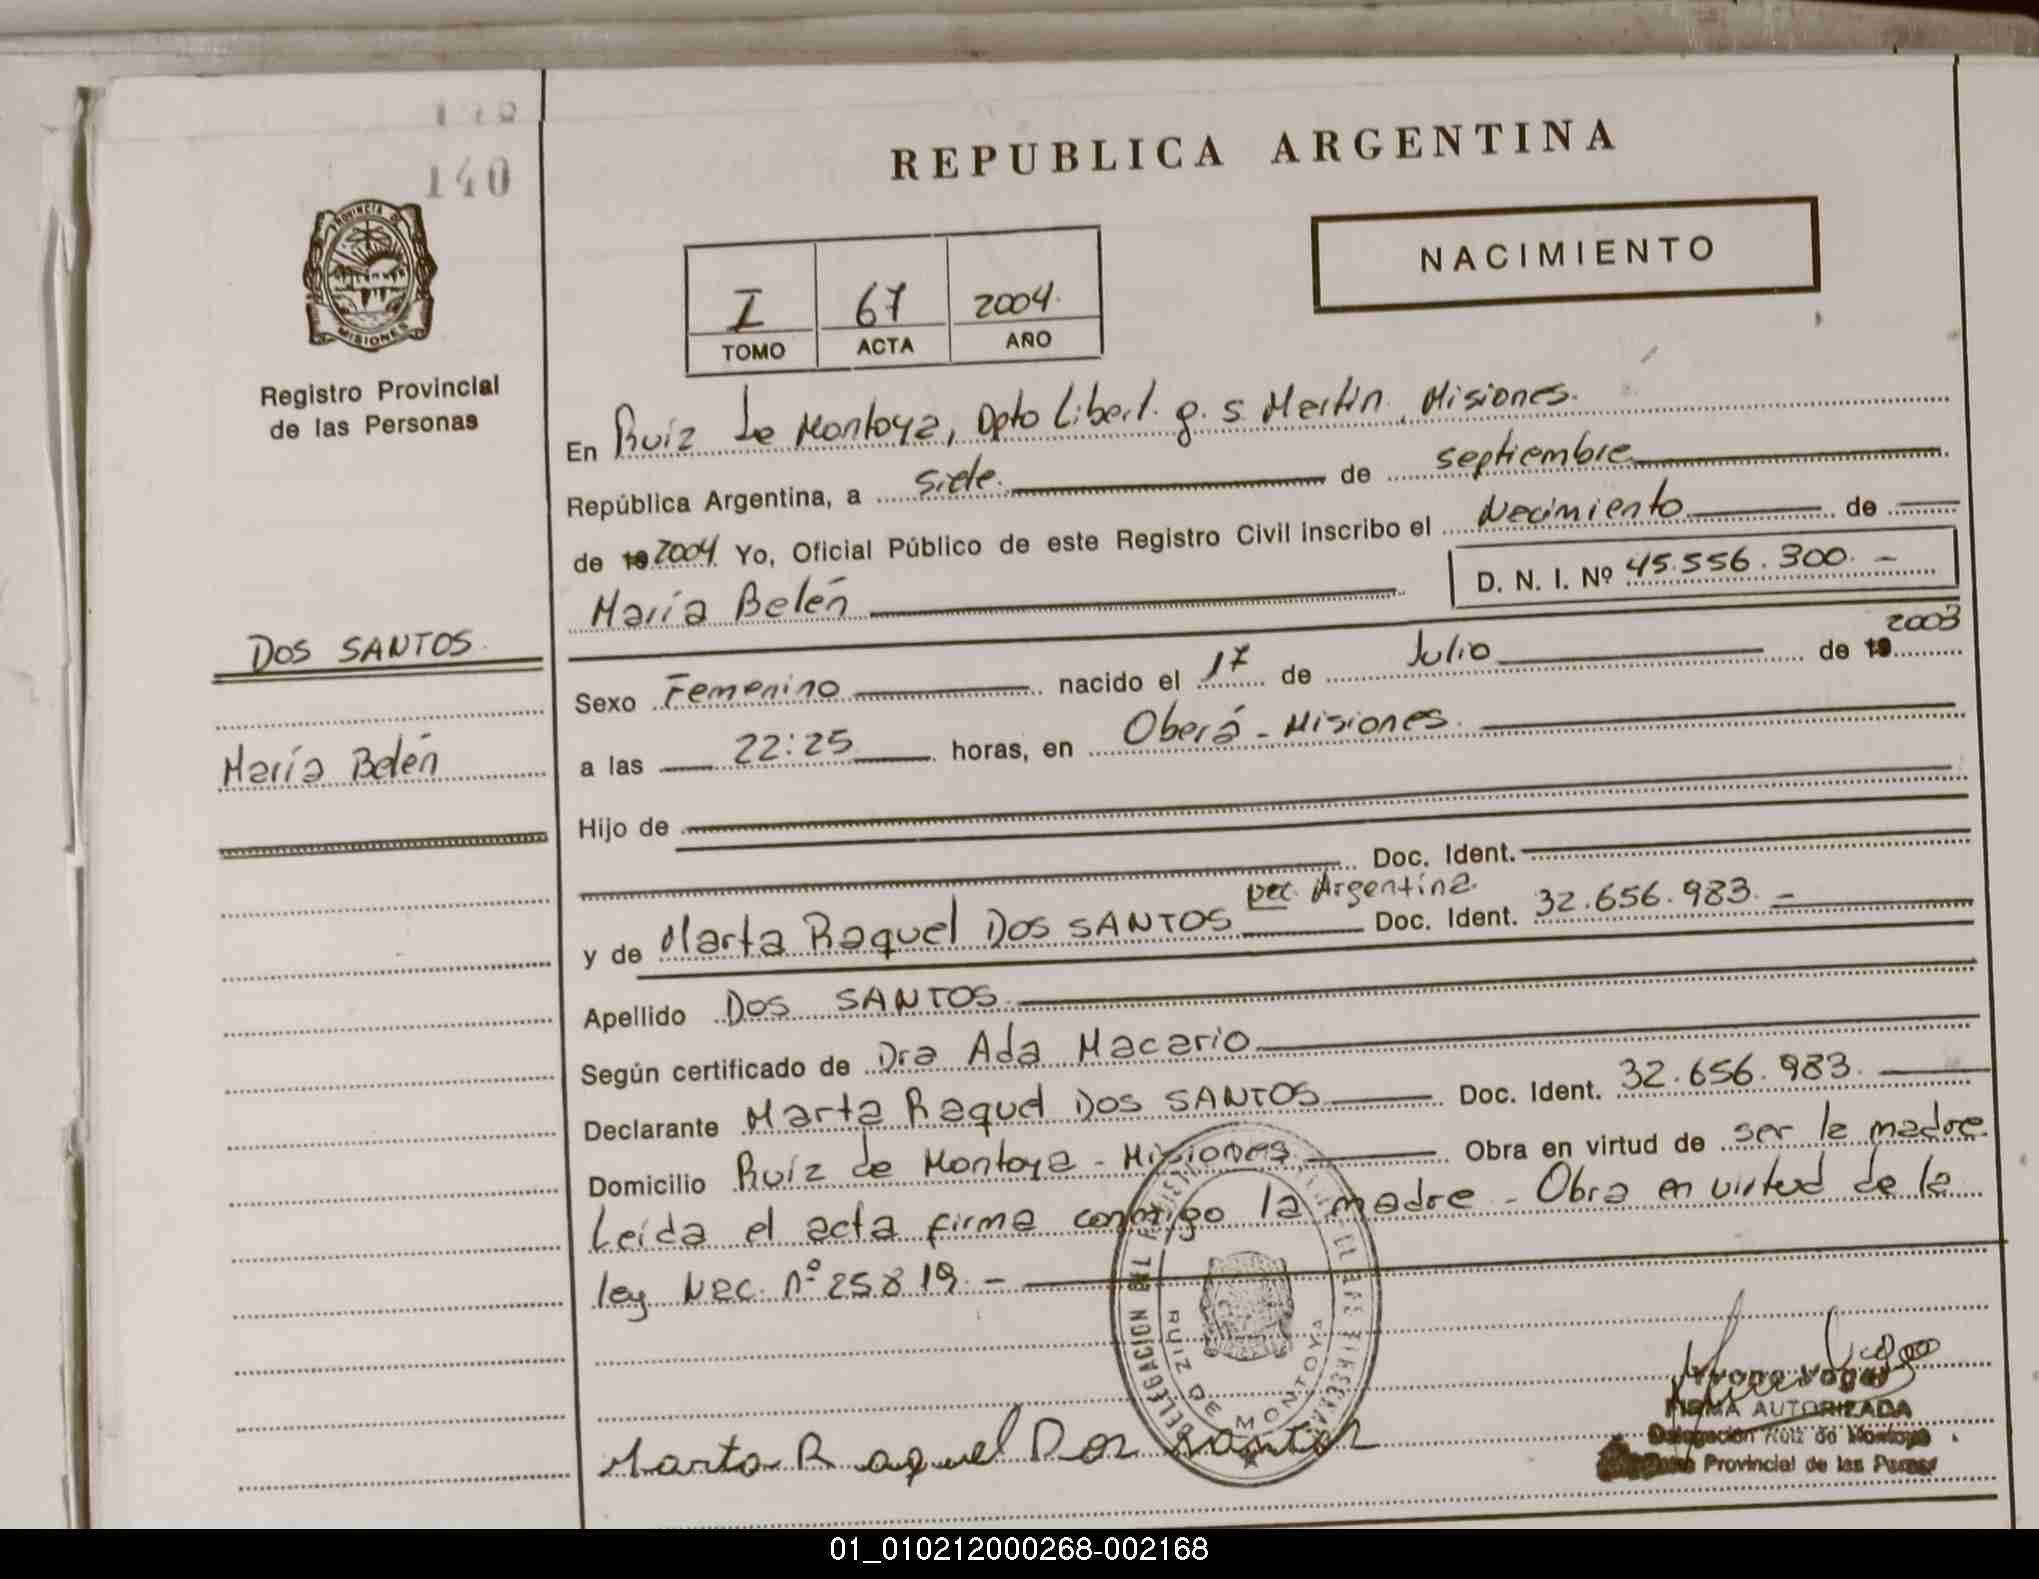 140
REPUBLICA ARGENTINA
PROVINCIA DE
MISIONES
NACIMIENTO
I 67 2004
TOMO ACTA AÑO
Registro Provincial
de las Personas
En Ruiz de Montoya, Dpto Libert. g. S. Martin, Misiones.
República Argentina, a siete de septiembre
de 19 2004 Yo, Oficial Público de este Registro Civil inscribo el Nacimiento de
María Belén D. N. I. Nº 45.556.300.-
DOS SANTOS
María Belén
Sexo Femenino nacido el 17 de Julio de 19 2003
a las 22:25 horas, en Oberá - Misiones.
Hijo de
Doc. Ident.
y de Marta Raquel DOS SANTOS Nac. Argentina. Doc. Ident. 32.656.983.-
Apellido DOS SANTOS.
Según certificado de Dra Ada Macario
Declarante Marta Raquel DOS SANTOS Doc. Ident. 32.656.983.
Domicilio Ruiz de Montoya - Misiones Obra en virtud de ser la madre.
Leída el acta firma conmigo la madre - Obra en virtud de la
ley Nac. nº 25819.-
DELEGACION DEL
RUIZ DE MONTOYA
Marta Raquel Dos Santos
FIRMA AUTORIZADA
Delegación Ruiz de Montoya
Provincial de las
01_010212000268-002168